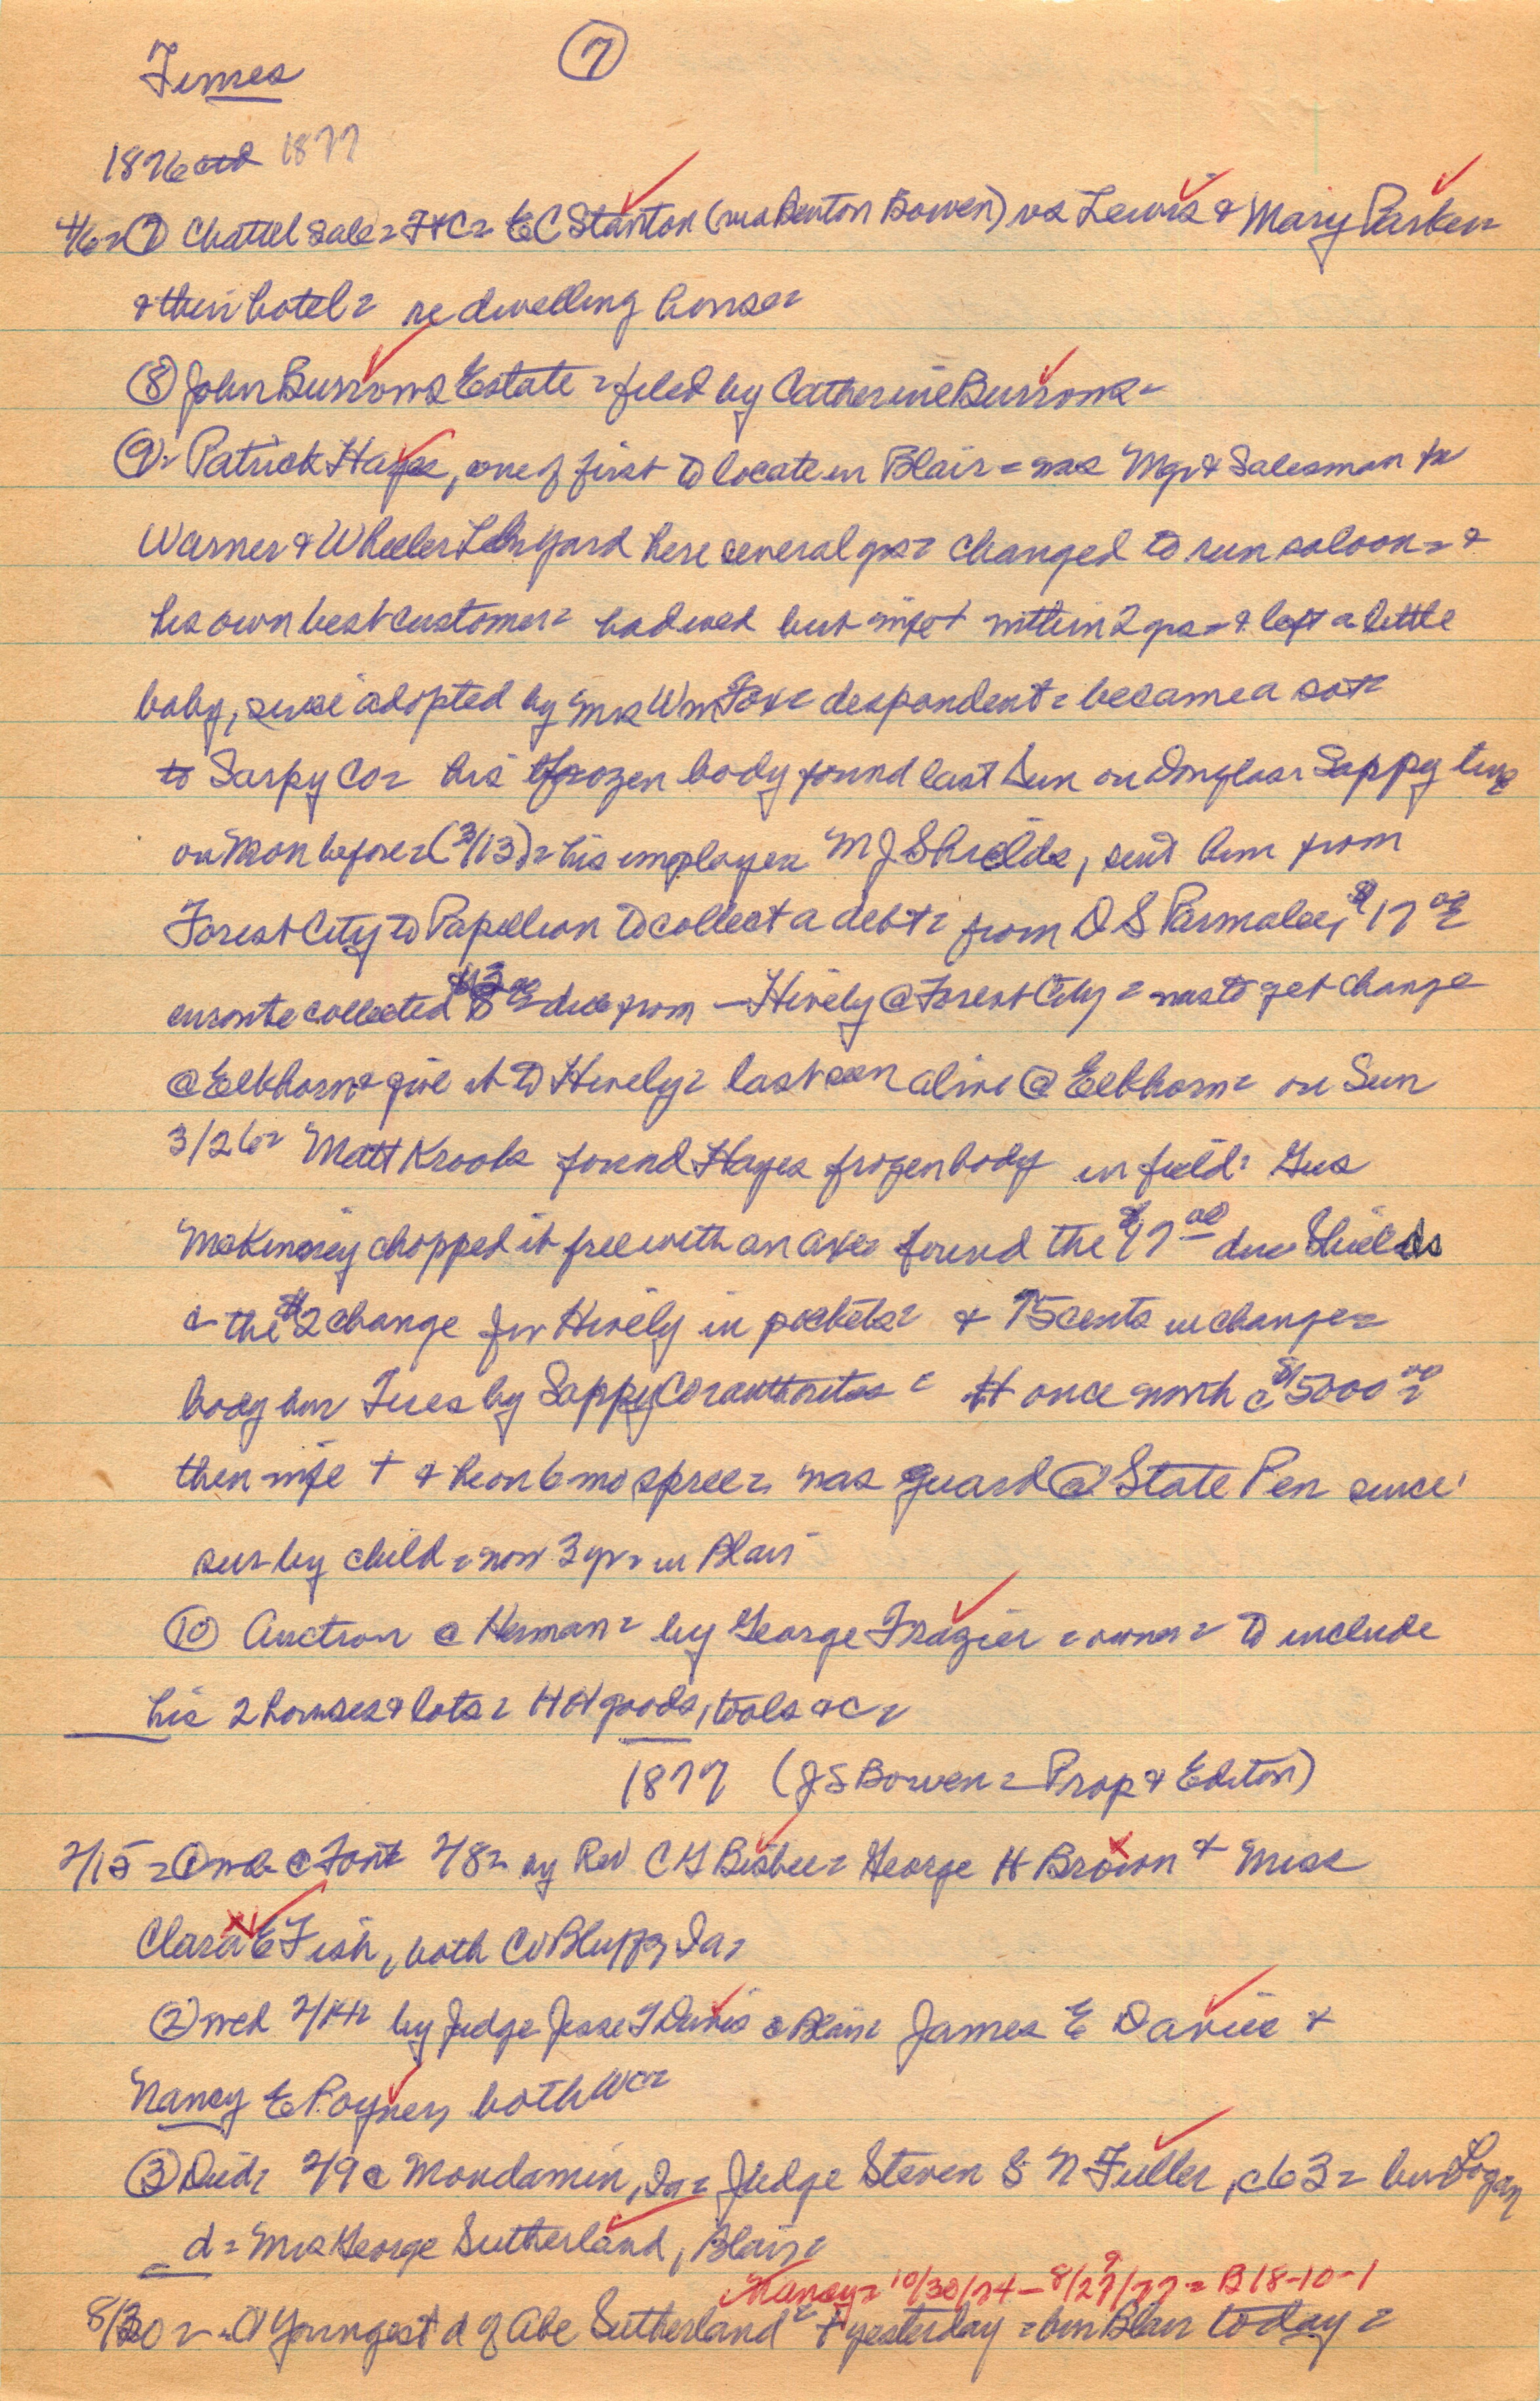 Times 7
1876 ctd 1877
4/6 = 7 Chattel sale = F+C = E C Stanton (via Benton Bowen) vs Lewis & Mary Parker =
& their hotel = re dwelling house =
8 John Burrows Estate = filed by Catherine Burrows =
9 = Patrick Hayes, one of first to locate in Blair = was Mgr & Salesman for
Warner & Wheeler Lbr Yard here several yrs = changed to run saloon = &
his own best customer = had wed but wife + within 2 yrs = & left a little
baby, since adopted by Mrs Wm Fox = despondent = became a sot =
to Sarpy Co = his frozen body found last Sun on Douglas Sappy line
on Mon before = (3/13) = his employer M J Shields, sent him from
Forest City to Papillion to collect a debt = from D S Parmalee, $17 00
enroute collected due from — Hively @ Forest City = was to get change
@ Elkhorn & give it to Hively = last seen alive @ Elkhorn = on Sun
3/26 = Matt Krools found Hayes frozen body in field = Gus
McKinney chopped it free with an axe = found the $17 00 due Shields
& the $2 change for Hively in pockets = & 75 cents in change =
body bur Tues by Sappy Co authorites = H once worth c $5000 00 =
then wife + & he on 6 mo spree = was guard @ State Pen since
sur by child = now 3 yr = in Blair
10 Auction @ Herman = by George Frazier = owner = to include
his 2 houses & lots = HH goods, tools &c =
1877 (J S Bowen = Prop & Editor)
2/15 = 1 wed @ Font 2/8 = by Rev C G Bisbee = George H Brown & Miss
Clara E Fish, both Co Bluffs, Ia =
2 wed 2/14 = by Judge Jesse T Davis @ Blair = James E Davis &
Nancy E Poyner, both WC =
3 Died = 2/9 @ Mondamin, Ia = Judge Steven S N Fuller, c 63 = bur Logan
d = Mrs George Sutherland, Blair =
Nancy = 10/30/74 - 8/29/77 = B18-10-1
8/30 = 1 Youngest d of Abe Sutherland = + yesterday = bur Blair today =